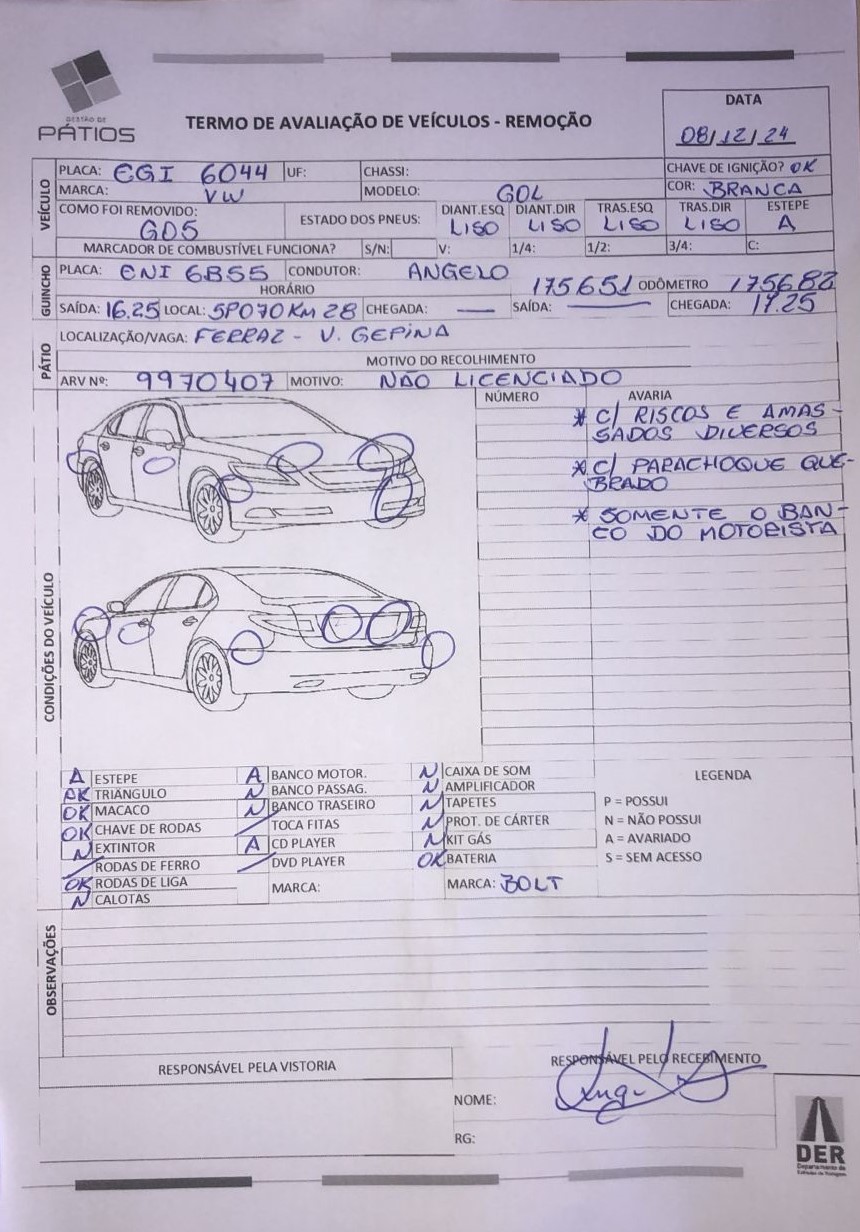 GESTÃO DE
PÁTIOS
TERMO DE AVALIAÇÃO DE VEÍCULOS - REMOÇÃO
DATA
08/12/24
VEÍCULO
PLACA: EGI 6044 UF: CHASSI: CHAVE DE IGNIÇÃO? OK
MARCA: VW MODELO: GOL COR: BRANCA
COMO FOI REMOVIDO: GD5 ESTADO DOS PNEUS: DIANT.ESQ LISO DIANT.DIR LISO TRAS.ESQ LISO TRAS.DIR LISO ESTEPE A
MARCADOR DE COMBUSTÍVEL FUNCIONA? S/N: V: 1/4: 1/2: 3/4: C:
GUINCHO
PLACA: ENI 6B55 CONDUTOR: ANGELO
HORÁRIO 175651 ODÔMETRO 175682
SAÍDA: 16.25 LOCAL: SP070 KM 28 CHEGADA: — SAÍDA: — CHEGADA: 17.25
PÁTIO
LOCALIZAÇÃO/VAGA: FERRAZ - V. GEPINA
MOTIVO DO RECOLHIMENTO
ARV Nº: 9970407 MOTIVO: NÃO LICENCIADO
CONDIÇÕES DO VEÍCULO
NÚMERO AVARIA
* C/ RISCOS E AMAS-
SADOS DIVERSOS
* C/ PARACHOQUE QUE-
BRADO
* SOMENTE O BAN-
CO DO MOTORISTA
A ESTEPE
OK TRIÂNGULO
OK MACACO
OK CHAVE DE RODAS
N EXTINTOR
/ RODAS DE FERRO
OK RODAS DE LIGA
N CALOTAS
A BANCO MOTOR.
N BANCO PASSAG.
N BANCO TRASEIRO
/ TOCA FITAS
A CD PLAYER
/ DVD PLAYER
MARCA:
N CAIXA DE SOM
N AMPLIFICADOR
N TAPETES
N PROT. DE CÁRTER
N KIT GÁS
OK BATERIA
MARCA: BOLT
LEGENDA
P = POSSUI
N = NÃO POSSUI
A = AVARIADO
S = SEM ACESSO
OBSERVAÇÕES
RESPONSÁVEL PELA VISTORIA
RESPONSÁVEL PELO RECEBIMENTO
NOME:
RG:
DER